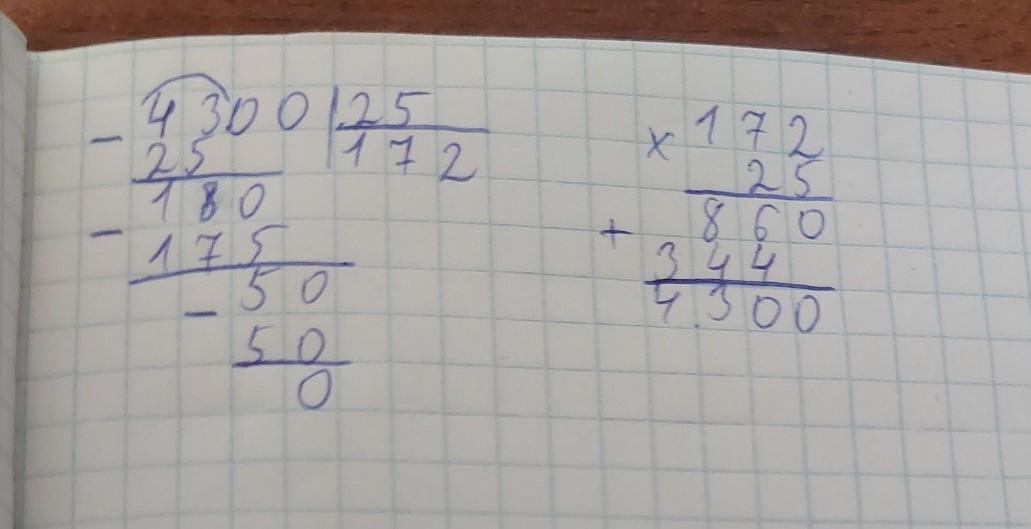 - 4300 | 25
25 | 172
180
- 175
- 50
50
0
x 172
25
+ 860
344
4300